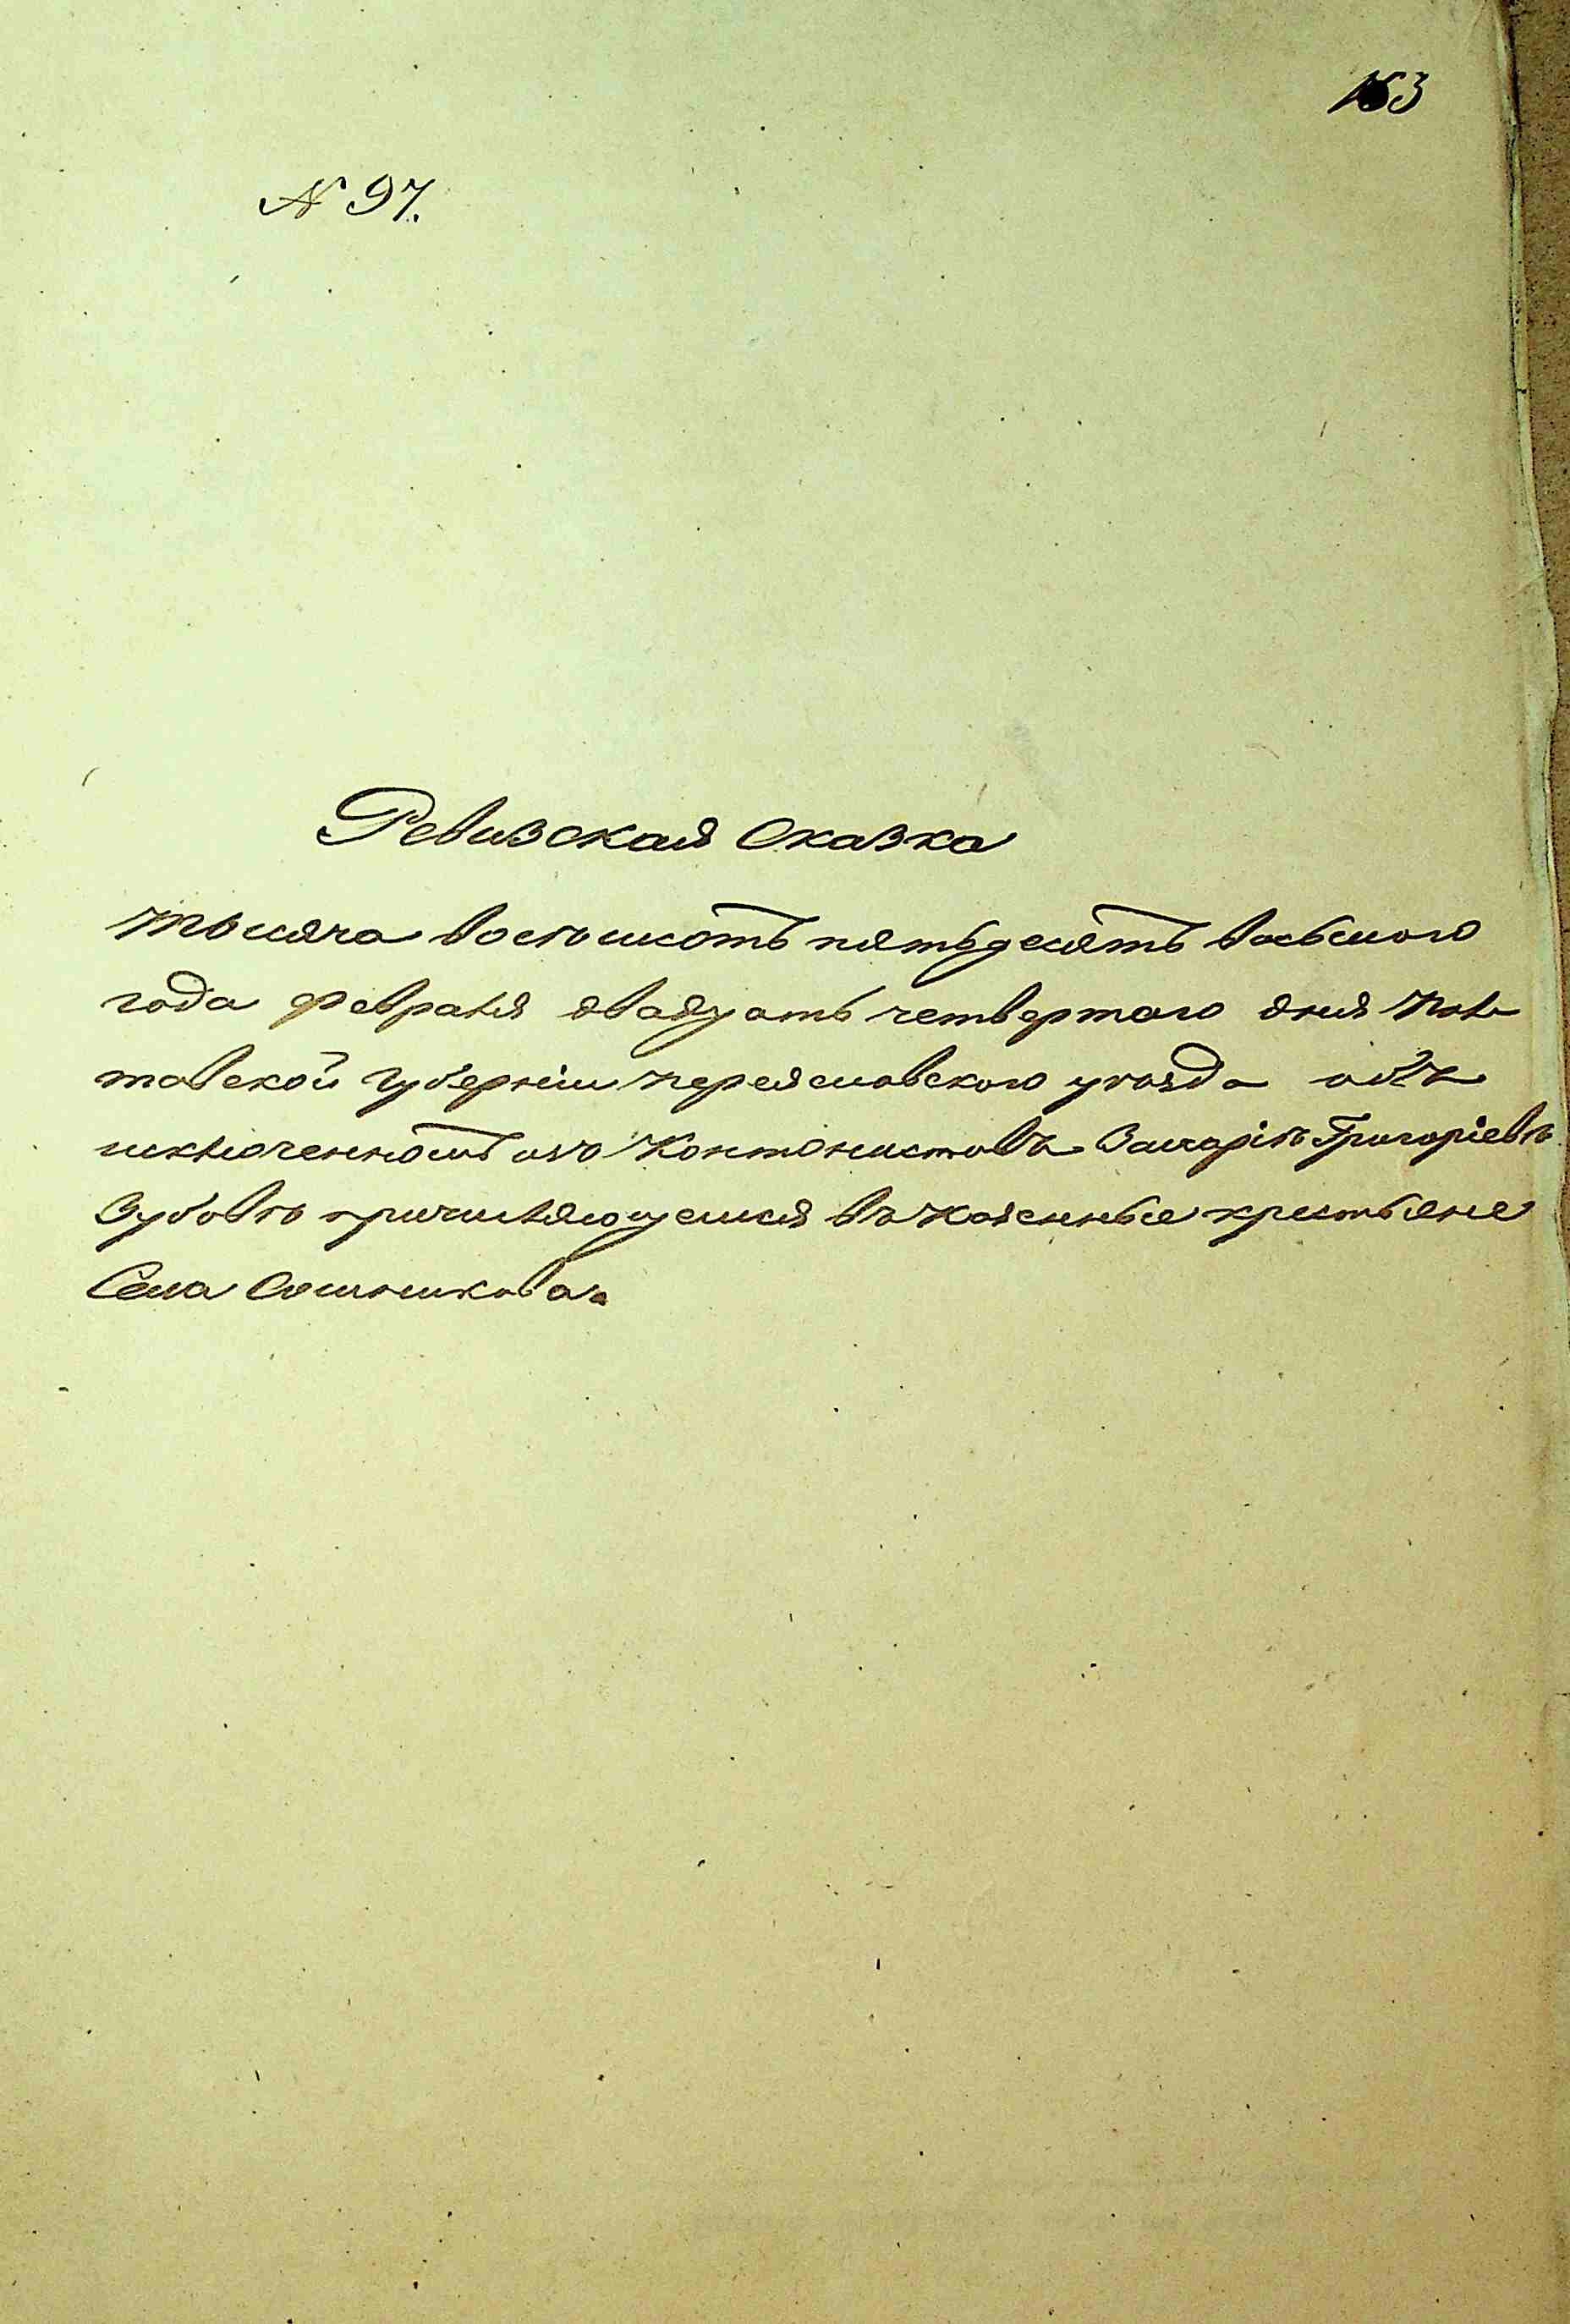 163
№ 97.
Ревизская Сказка
тысяча восемьсотъ пятьдесятъ восьмаго
года февраля двадцать четвертаго дня Пол
тавской Губерніи Переяславского уѣзда объ
исключенномъ изъ Кантонистовъ Захаріѣ Григоріевѣ
Зубовѣ причисляющемся въ казенные крестьяне
Села Сошникова.